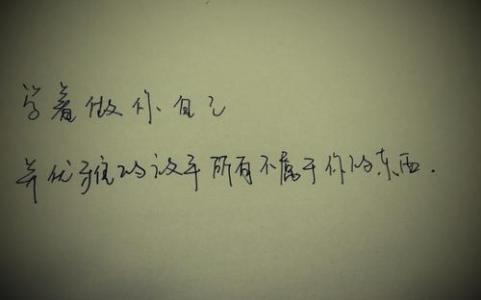 学着做你自己
并优雅的放手所有不属于你的东西.